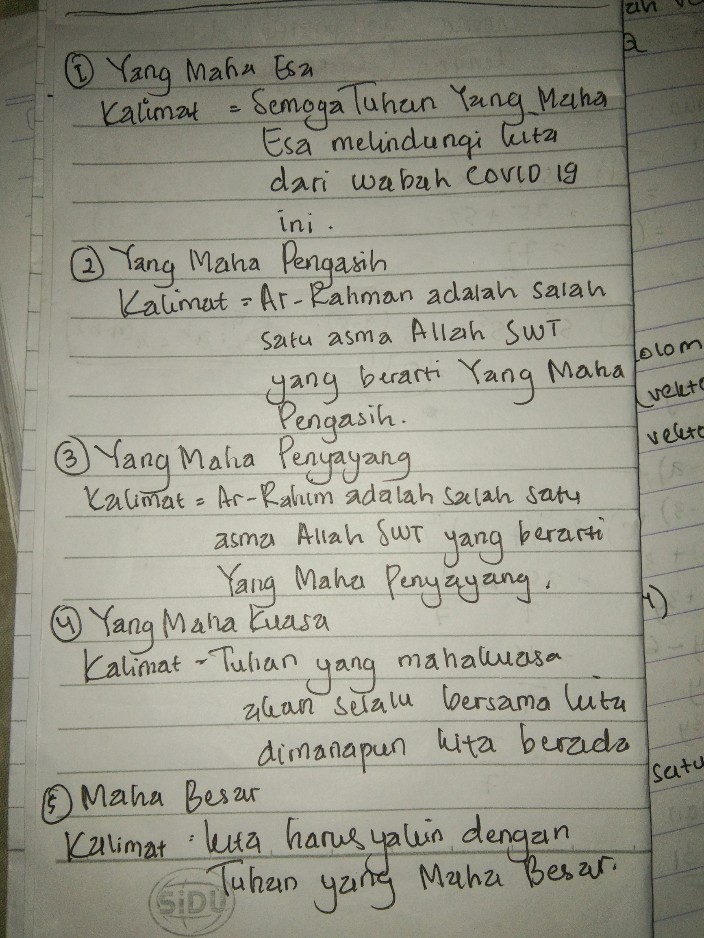 ① Yang Maha Esa
Kalimat = Semoga Tuhan Yang Maha
Esa melindungi kita
dari wabah COVID 19
ini.
② Yang Maha Pengasih
Kalimat = Ar-Rahman adalah salah
satu asma Allah SWT
yang berarti Yang Maha
Pengasih.
③ Yang Maha Penyayang
Kalimat = Ar-Rahim adalah salah satu
asma Allah SWT yang berarti
Yang Maha Penyayang.
④ Yang Maha Kuasa
Kalimat = Tuhan yang mahakuasa
akan selalu bersama kita
dimanapun kita berada
⑤ Maha Besar
Kalimat : kita harus yakin dengan
Tuhan yang Maha Besar.
SiDU
2
olom
(vekt
vekt
satu